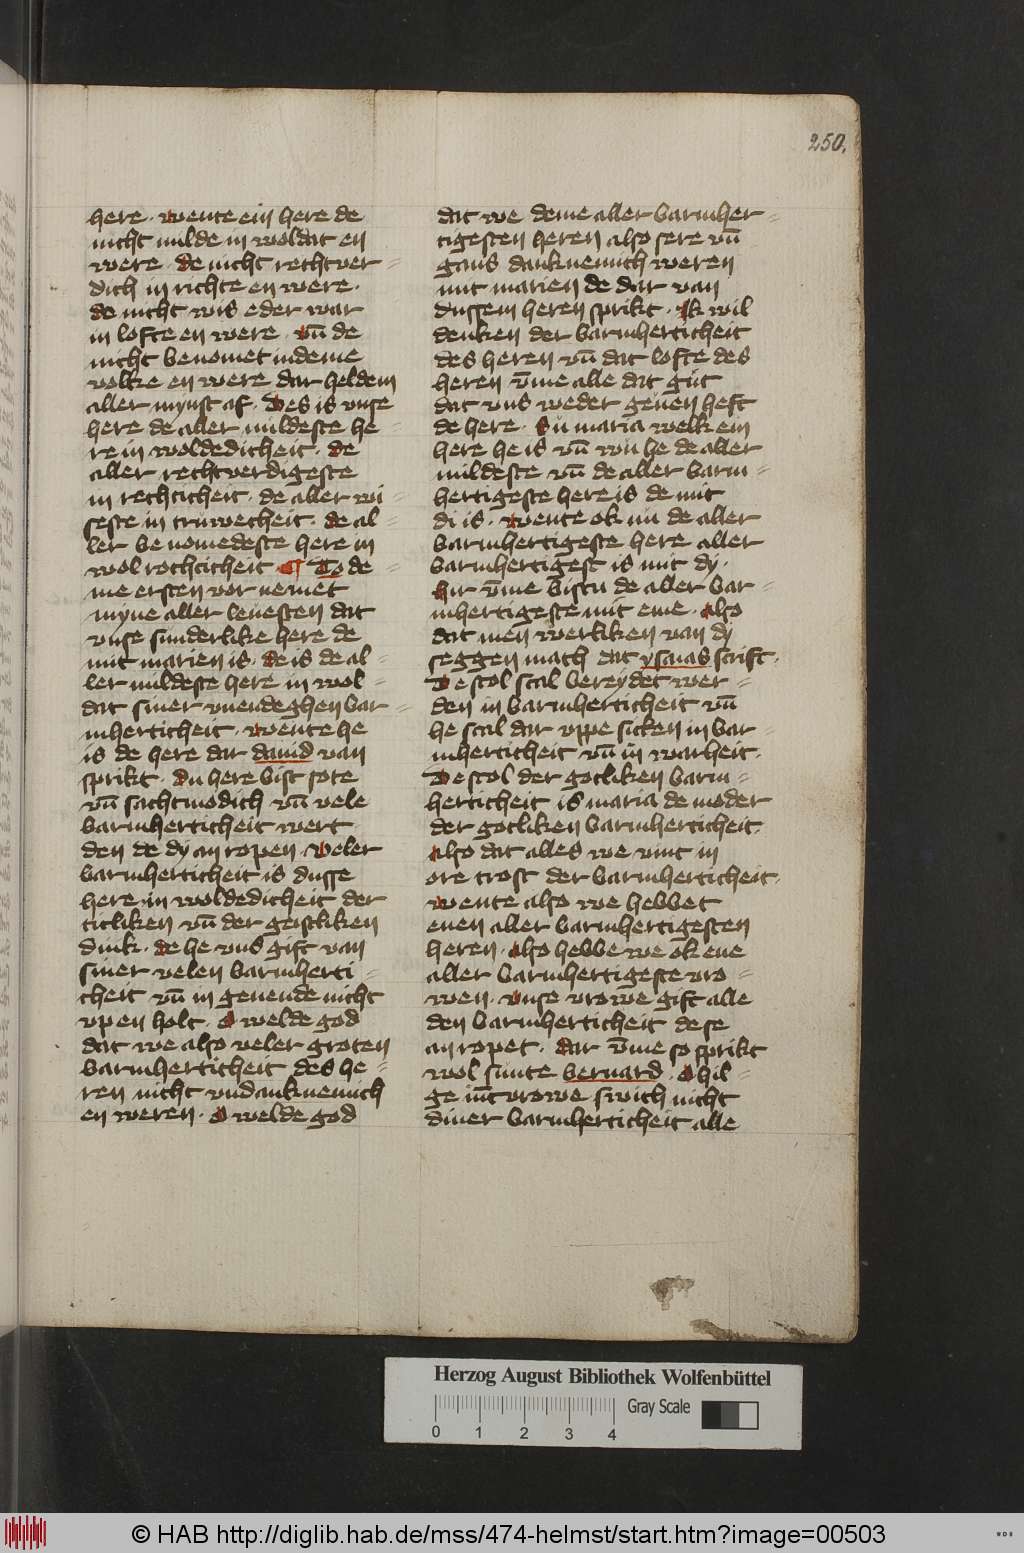 250.
here · wente ein here de
nicht milde in woldat en
were · de nicht rechtver=
dich in richte en were ·
de nicht wis eder war
in lofte en were · vn̄ de
nicht benomet in deme
volke en were dar helde m
aller mynst af · Des is vnse
here de aller mildeste he=
re in woldedicheit · de
aller rechtverdigeste
in rechticheit · de aller wi=
seste in truwecheit · de al=
ler benomedeste here in
wolrochticheit ¶ To de=
me ersten vornemet
myne aller leuesten dat
vnse sunderlike here de
mit marien is · de is de al=
ler mildeste here in wol=
dat siner vnendeghen bar=
mherticheit · wente he
is de here dar dauid van
sprikt · Du here bist sote
vn̄ sachtmodich vn̄ vele
barmherticheit wert
den de dy an ropen · veler
barmherticheit is dusse
here in woldedicheit der
titliken vn̄ der geistliken
dink · de he vns gift van
siner velen barmherti=
cheit vn̄ in geuende nicht
vpen holt · O welde god
dat we also veler groten
barmherticheit des he=
ren nicht vndanknemich
en weren · O welde god
dat we deme aller barmher=
tigesten heren also sere vn̄
gans danknemich weren
mit marien de dar van
dussem heren sprikt · Ik wil
denken der barmherticheit
des heren vn̄ dat lofte des
heren v̄me alle dat gůt
dat vns weder geuen heft
de here · Sů maria welk ein
here he is vn̄ wu he de aller
mildeste vn̄ de aller barm=
hertigeste here is de mit
di is · wente ok nu de aller
barmhertigeste here aller
barmhertigest is mit dy ·
hir v̄me bistu de aller bar=
mhertigeste mit eme · Also
dat men werkliken van dy
seggen mach dat ysaias scrift ·
De stol scal bereydet wer=
den in barmherticheit vn̄
he scal dar vppe sitten in bar=
mherticheit vn̄ in warheit ·
De stol der gotliken barm=
herticheit is maria de moder
der gotliken barmherticheit ·
Also dat alles we vint in
ore trost der barmherticheit ·
wente also we hebbet
enen aller barmhertigesten
heren · Also hebbe we ok ene
aller barmhertigeste vro=
wen · vnse vrowe gift alle
den barmherticheit de se
an ropet · dar v̄me so sprikt
wol sunte bernard · O hil=
ge iunc̄vrowe swich nicht
diner barmherticheit alle
Herzog August Bibliothek Wolfenbüttel
Gray Scale
0 1 2 3 4
© HAB http://diglib.hab.de/mss/474-helmst/start.htm?image=00503